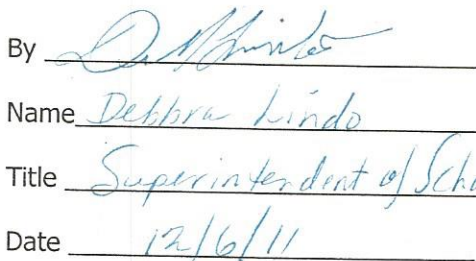 By
Name Debbra Lindo
Title Superintendent of Scho
Date 12/6/11